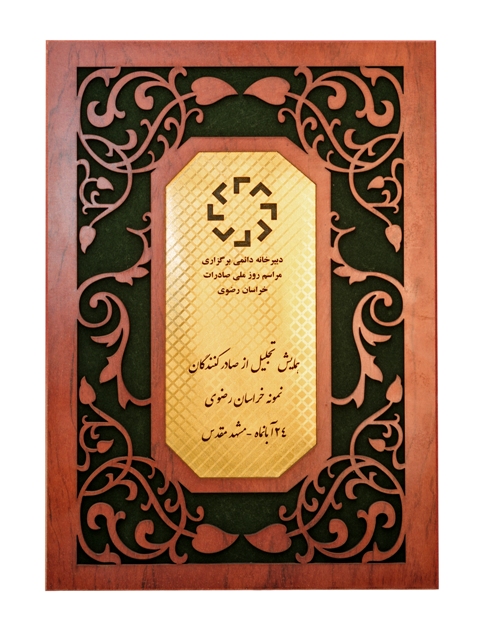 دبیرخانه دائمی برگزاری
مراسم روز ملی صادرات
خراسان رضوی
همایش تجلیل از صادرکنندگان
نمونه خراسان رضوی
۲۴ آبانماه - مشهد مقدس